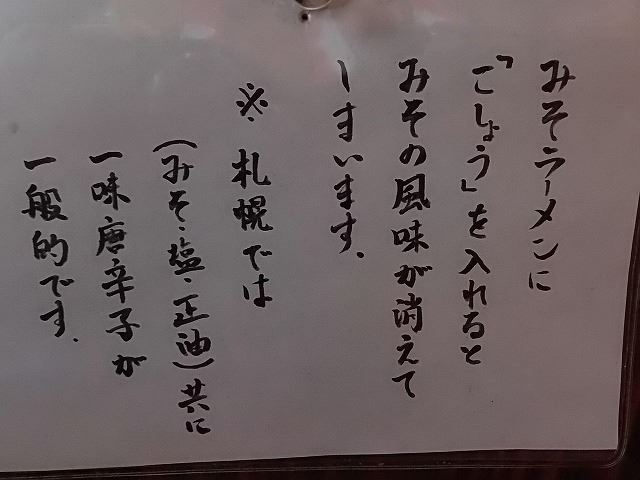 みそラーメンに
「こしょう」を入れると
みその風味が消えて
しまいます.
※ 札幌では
(みそ・塩・正油)共に
一味唐辛子が
一般的です.